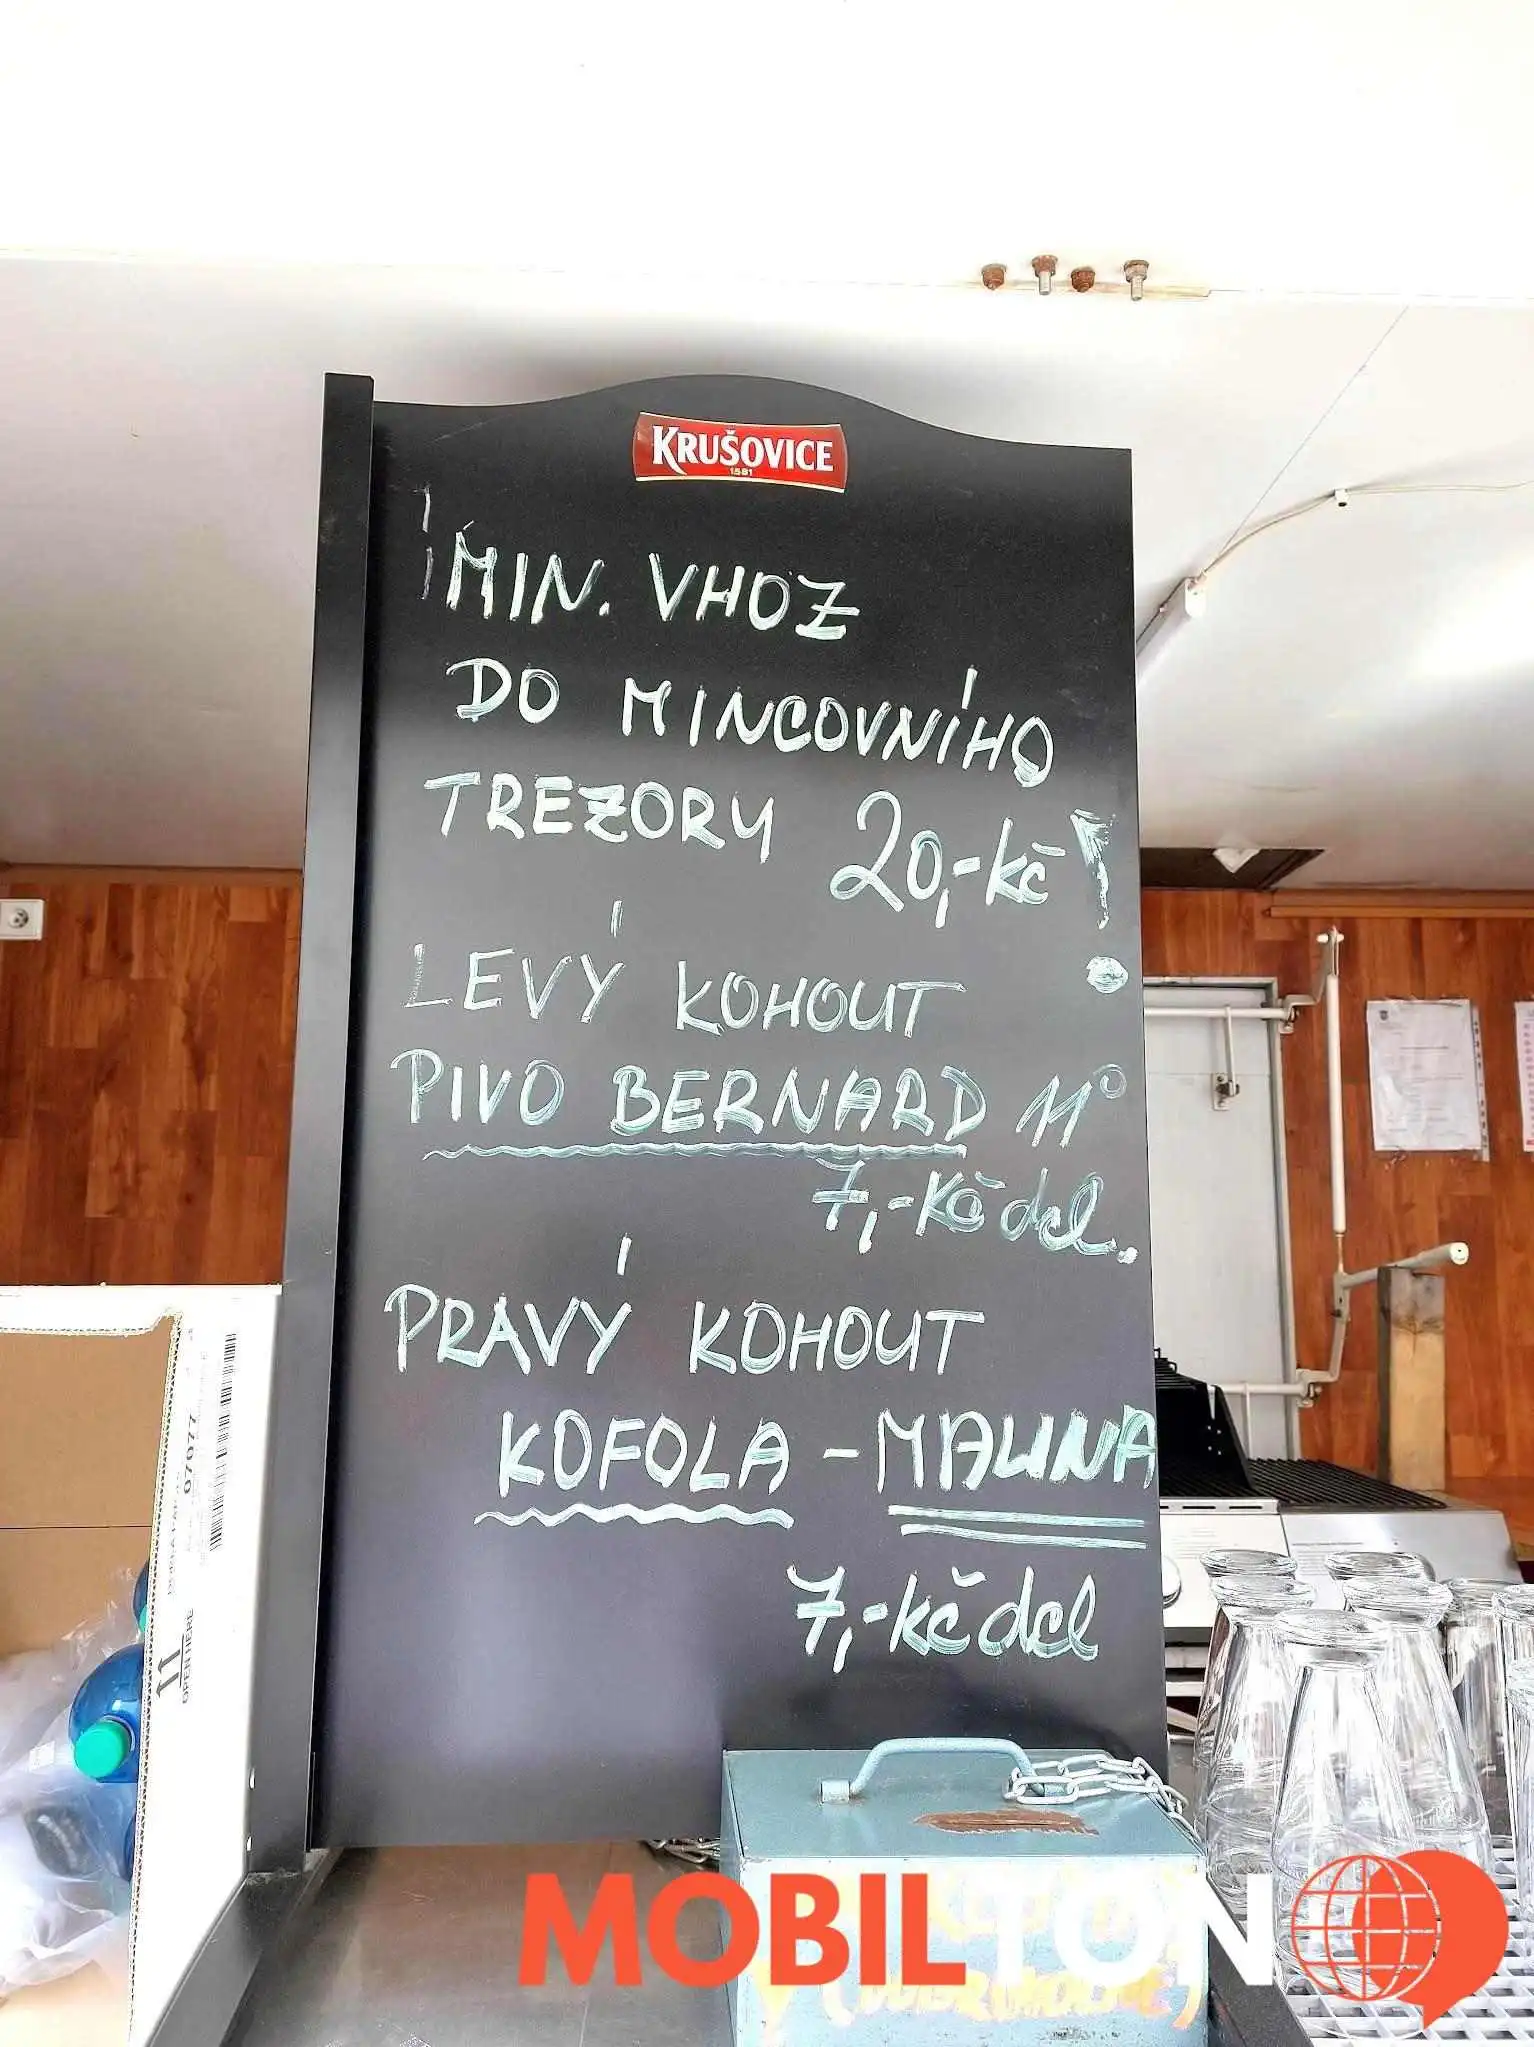 KRUŠOVICE
1581
MIN. VHOZ
DO MINCOVNÍHO
TREZORY 20,-Kč !
LEVÝ KOHOUT
PIVO BERNARD 11°
7,-Kč dcl.
PRAVÝ KOHOUT
KOFOLA - MALINA
7,-Kč dcl
07077
11
OPEN HERE
MOBILTON